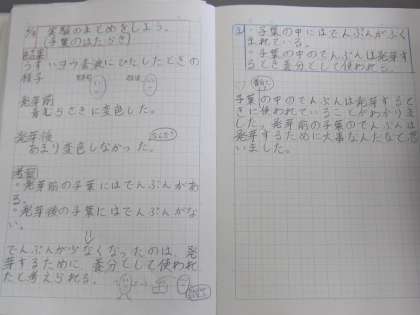 実験のまとめをしよう。
(子葉のはたらき)
結果
うすいヨウ素液にひたしたときの
様子
発芽前
青むらさきに変色した。
発芽後
あまり変色しなかった。
考察
・発芽前の子葉にはでんぷんがあ
る。
・発芽後の子葉にはでんぷんがな
い。
でんぷんが少なくなったのは、発
芽するために養分として使われ
たと考えられる。
・子葉の中にはでんぷんがふく
まれている。
・子葉の中のでんぷんは発芽す
るとき養分として使われる。
子葉の中のでんぷんは発芽するとき
に使われていることがわかりま
した。発芽前の子葉のでんぷんは
発芽するために大事なんだなと思
いました。